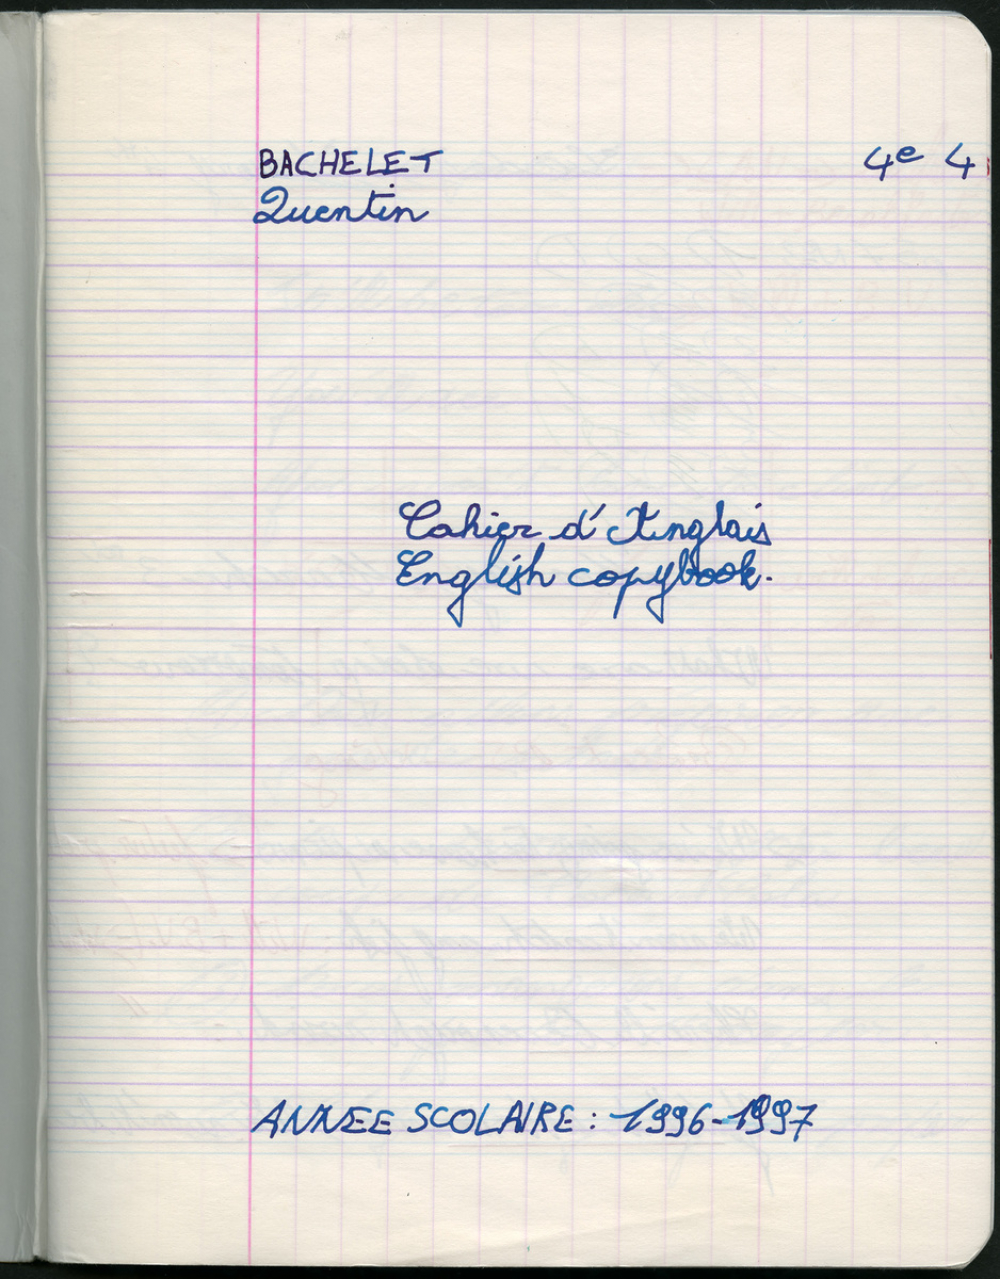 BACHELET 4e 4
Quentin
Cahier d'Anglais
English copybook.
ANNEE SCOLAIRE : 1996-1997